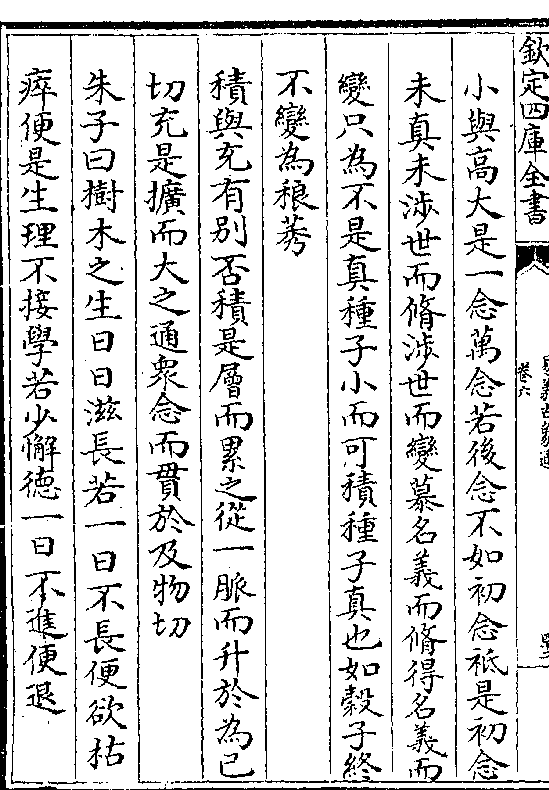 欽定四庫全書
卷六
小與高大是一念萬念若後念不如初念祇是初念
未真未涉世而脩涉世而變慕名義而脩得名義而
變只為不是真種子小而可積種子真也如穀子終
不變為稂莠
積與充有别否積是層而累之從一脈而升於為己
切充是擴而大之通衆念而貫於及物切
朱子曰樹木之生日日滋長若一日不長便欲枯
瘁便是生理不接學若少懈德一日不進便退